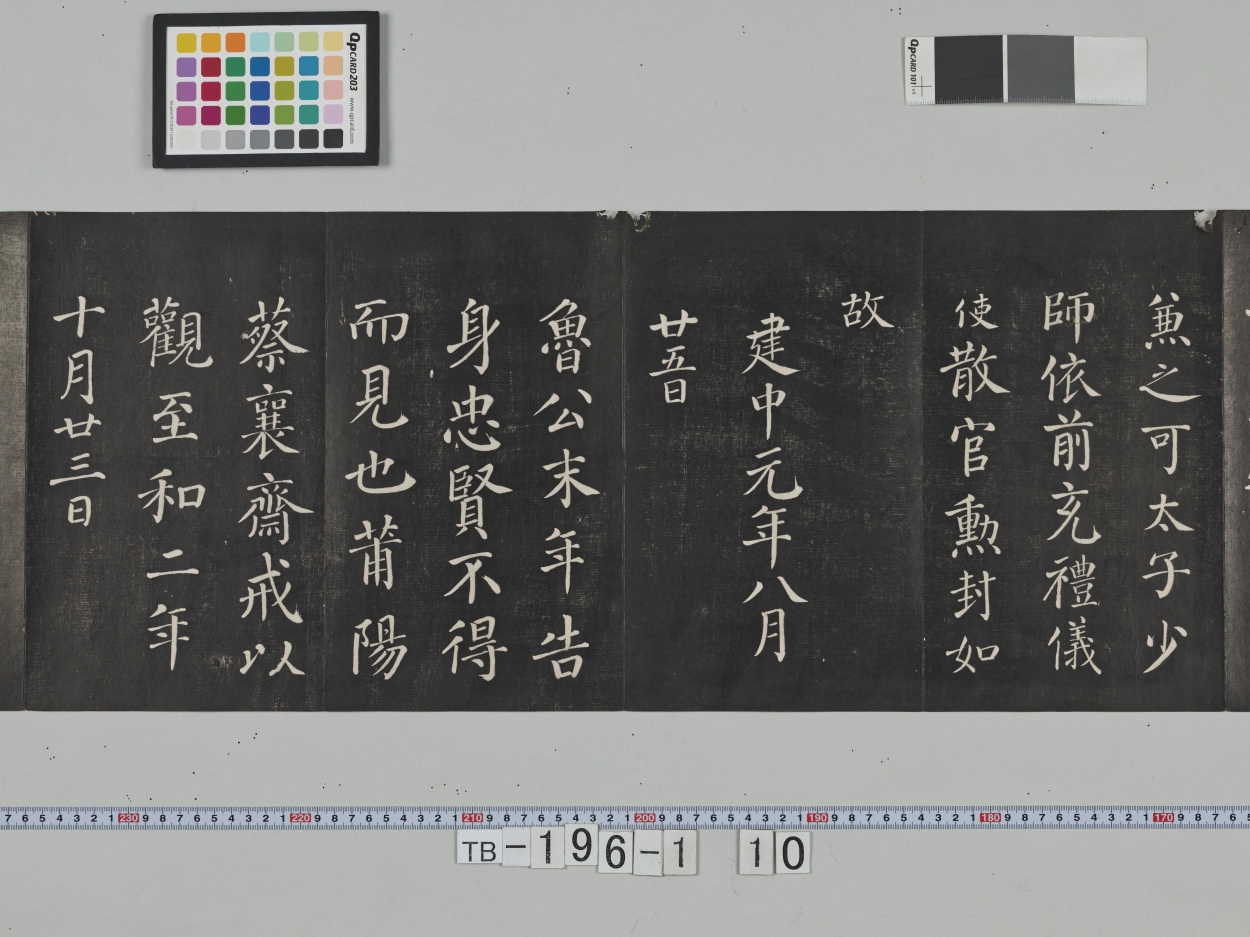 兼之可太子少
師依前充禮儀
使散官勲封如
故
建中元年八月
廿五日
魯公末年告
身忠賢不得
而見也莆陽
蔡襄齋戒以
觀至和二年
十月廿三日
QpCARD 203 www.qpcard.com
QpCARD 101
7 6 5 4 3 2 1 230 9 8 7 6 5 4 3 2 1 220 9 8 7 6 5 4 3 2 1 210 9 8 7 6 5 4 3 2 1 200 9 8 7 6 5 4 3 2 1 190 9 8 7 6 5 4 3 2 1 180 9 8 7 6 5 4 3 2 1 170 9 8 7 6
TB-196-1 10